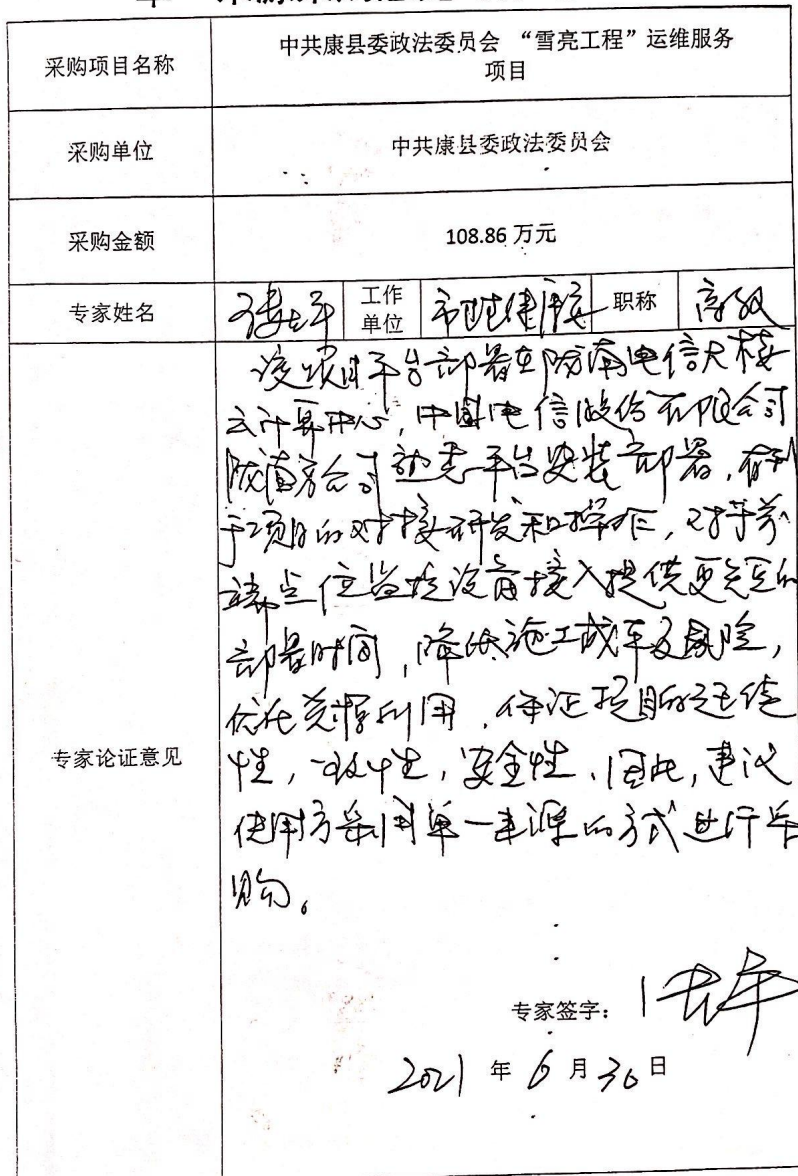 采购项目名称
中共康县委政法委员会 “雪亮工程”运维服务
项目
采购单位
中共康县委政法委员会
采购金额
108.86 万元
专家姓名
工作
单位
职称
高级
专家论证意见
该项目平台部署在陇南电信大楼
云计算中心,中国电信股份有限公司
陇南分公司 平台安装部署,有利
于项目的对接研发和操作,对于前
端点位监控设备接入提供更充足的
部署时间,降低施工成本及风险,
优化资源利用,保证项目的连续
性,一致性,安全性、因此,建议
使用方采用单一来源的方式进行采
购。
专家签字:
2021 年 6 月 30 日